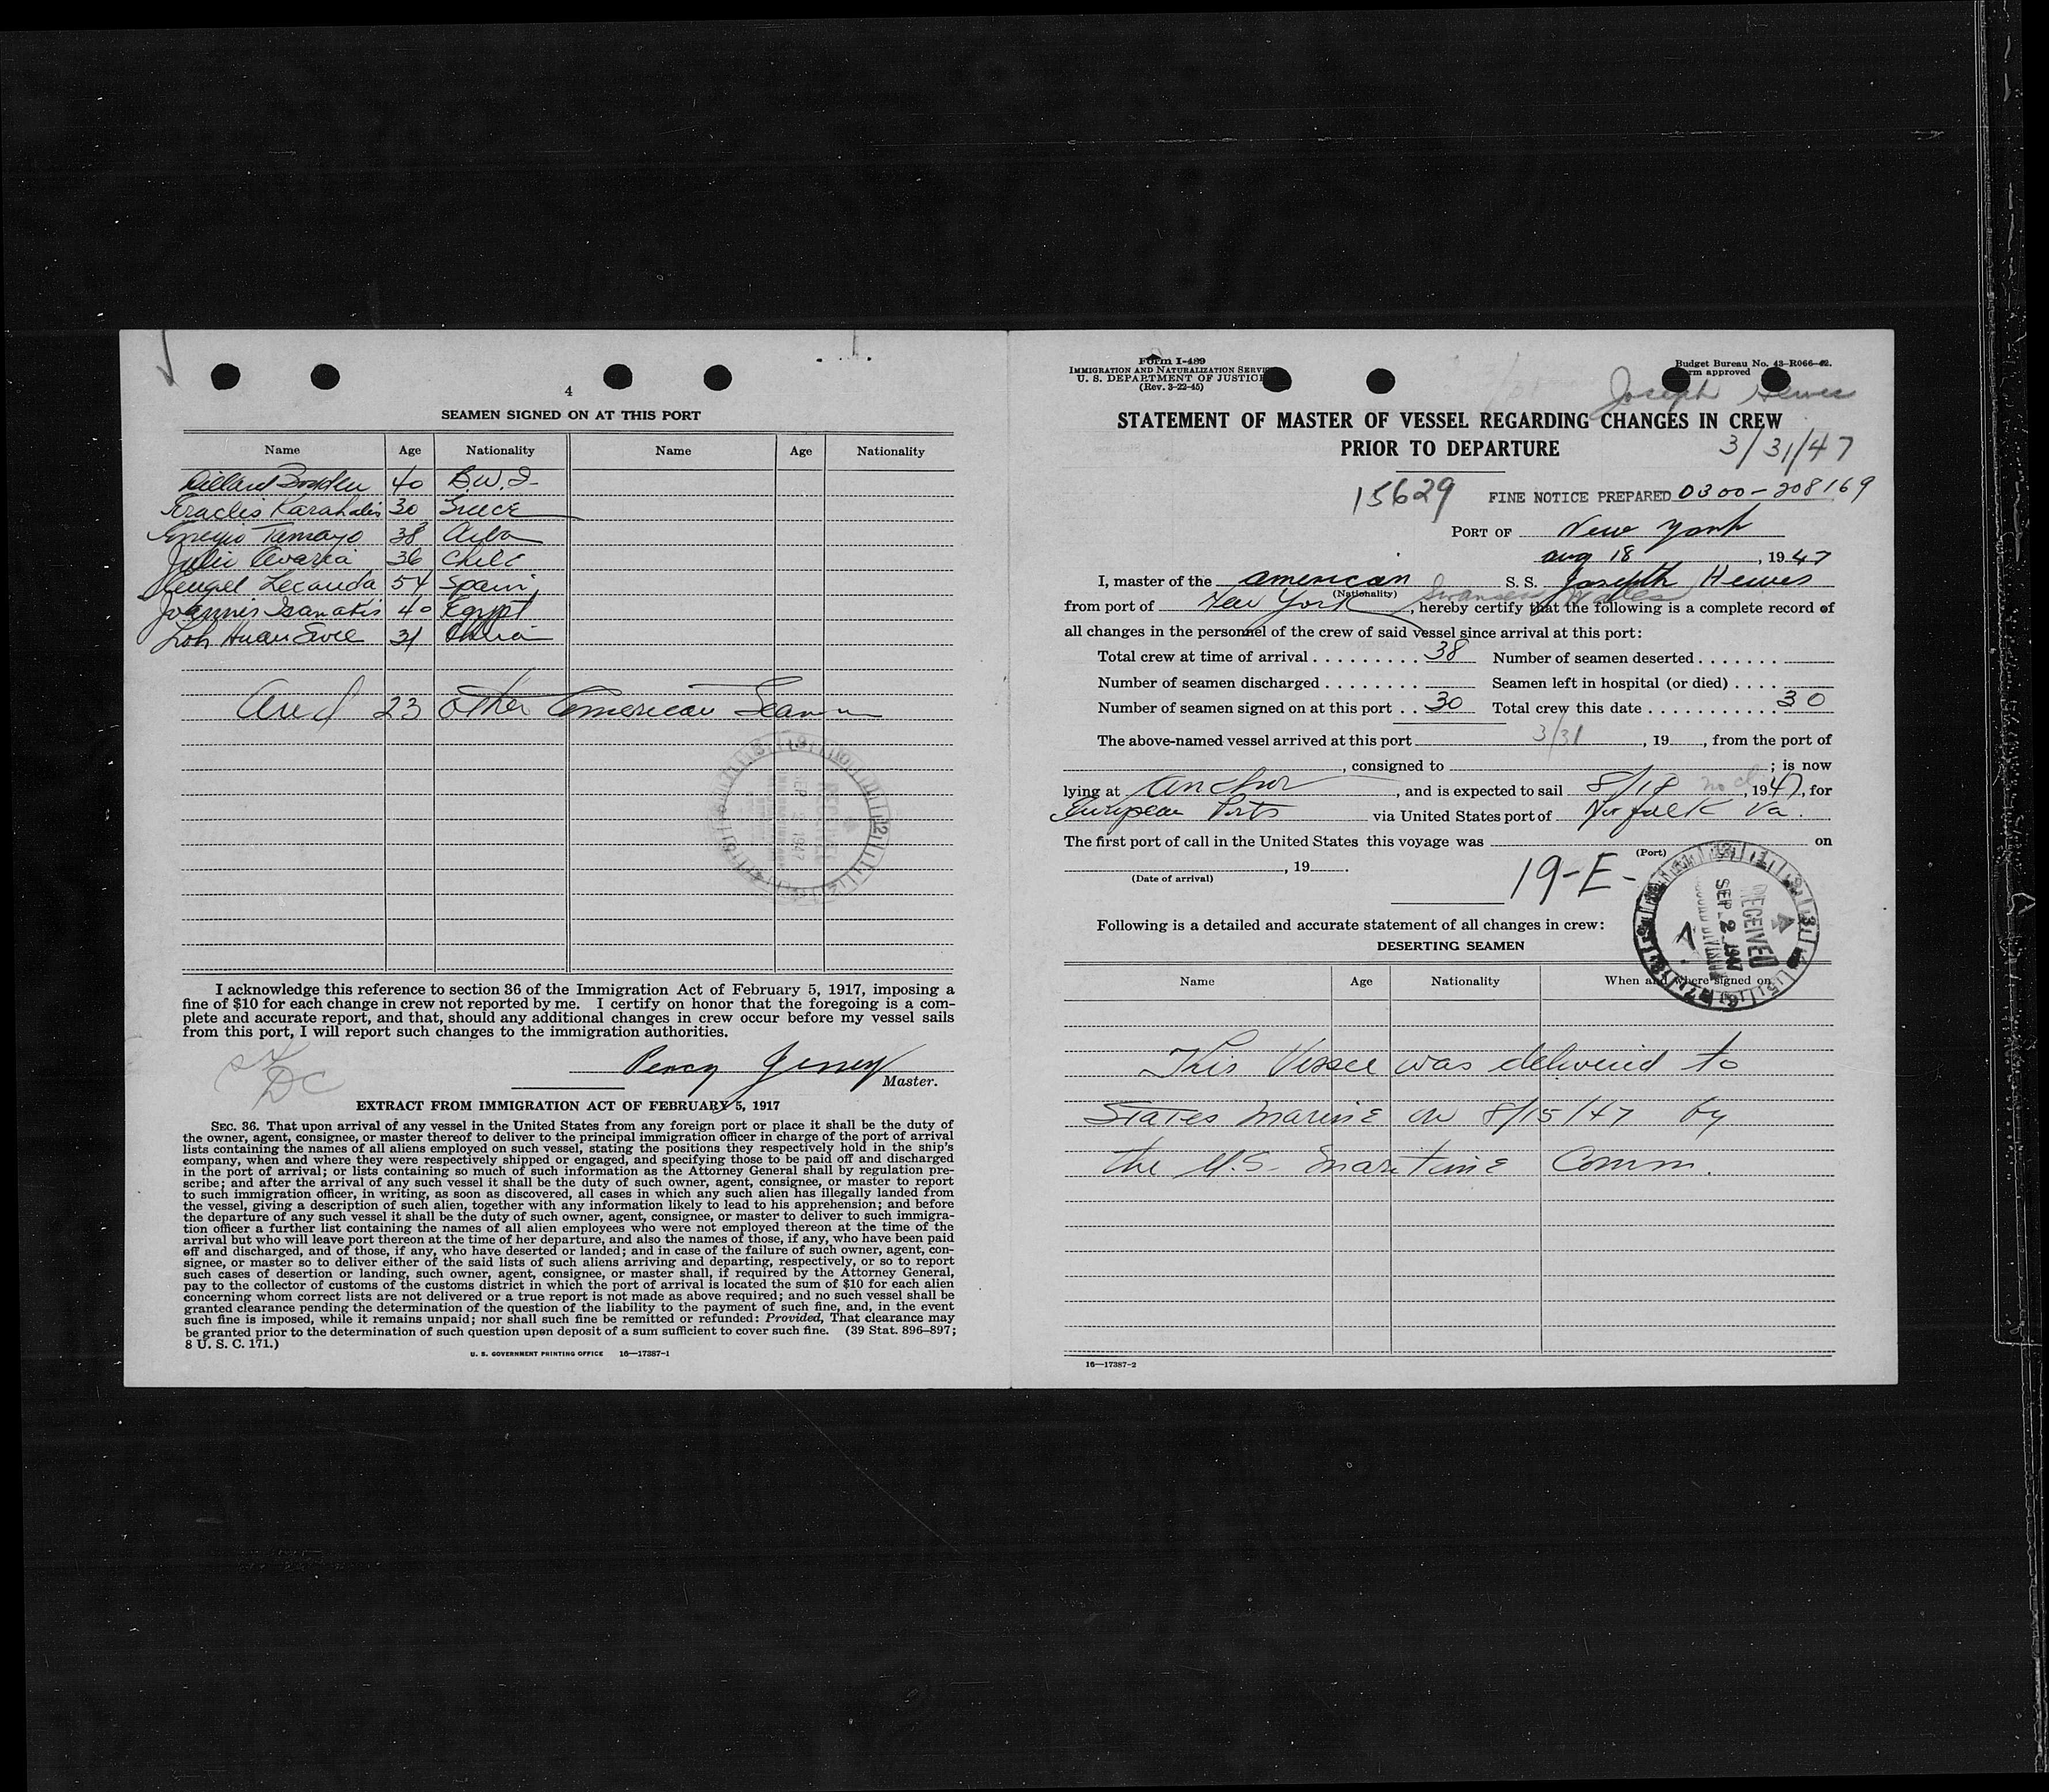 4
SEAMEN SIGNED ON AT THIS PORT
Name Age Nationality Name Age Nationality
40 B.W.I.
Eraclis Karahalis 30 Greece
Tamayo 38
Julio 36 Chile
Lecanda 54 Spain
40 Egypt
Loh Huan Swee 31
And 23 other American Seamen
I acknowledge this reference to section 36 of the Immigration Act of February 5, 1917, imposing a
fine of $10 for each change in crew not reported by me. I certify on honor that the foregoing is a com-
plete and accurate report, and that, should any additional changes in crew occur before my vessel sails
from this port, I will report such changes to the immigration authorities.
DC
Percy
Master.
EXTRACT FROM IMMIGRATION ACT OF FEBRUARY 5, 1917
SEC. 36. That upon arrival of any vessel in the United States from any foreign port or place it shall be the duty of
the owner, agent, consignee, or master thereof to deliver to the principal immigration officer in charge of the port of arrival
lists containing the names of all aliens employed on such vessel, stating the positions they respectively hold in the ship's
company, when and where they were respectively shipped or engaged, and specifying those to be paid off and discharged
in the port of arrival; or lists containing so much of such information as the Attorney General shall by regulation pre-
scribe; and after the arrival of any such vessel it shall be the duty of such owner, agent, consignee, or master to report
to such immigration officer, in writing, as soon as discovered, all cases in which any such alien has illegally landed from
the vessel, giving a description of such alien, together with any information likely to lead to his apprehension; and before
the departure of any such vessel it shall be the duty of such owner, agent, consignee, or master to deliver to such immigra-
tion officer a further list containing the names of all alien employees who were not employed thereon at the time of the
arrival but who will leave port thereon at the time of her departure, and also the names of those, if any, who have been paid
off and discharged, and of those, if any, who have deserted or landed; and in case of the failure of such owner, agent, con-
signee, or master so to deliver either of the said lists of such aliens arriving and departing, respectively, or so to report
such cases of desertion or landing, such owner, agent, consignee, or master shall, if required by the Attorney General,
pay to the collector of customs of the customs district in which the port of arrival is located the sum of $10 for each alien
concerning whom correct lists are not delivered or a true report is not made as above required; and no such vessel shall be
granted clearance pending the determination of the question of the liability to the payment of such fine, and, in the event
such fine is imposed, while it remains unpaid; nor shall such fine be remitted or refunded: Provided, That clearance may
be granted prior to the determination of such question upon deposit of a sum sufficient to cover such fine. (39 Stat. 896–897;
8 U. S. C. 171.)
U. S. GOVERNMENT PRINTING OFFICE 16—17387-1
Form I-489
IMMIGRATION AND NATURALIZATION SERVICE
U. S. DEPARTMENT OF JUSTICE
(Rev. 3-22-45)
Budget Bureau No. 43-R066-42.
Form approved
Joseph Hewes
STATEMENT OF MASTER OF VESSEL REGARDING CHANGES IN CREW
PRIOR TO DEPARTURE
3/31/47
15629 FINE NOTICE PREPARED 0300-208169
PORT OF New York
Aug 18, 1947
I, master of the American S. S. Joseph Hewes
(Nationality) Swansea Wales
from port of New York, hereby certify that the following is a complete record of
all changes in the personnel of the crew of said vessel since arrival at this port:
Total crew at time of arrival . . . . . . . . . 38 Number of seamen deserted . . . . . . .
Number of seamen discharged . . . . . . . . Seamen left in hospital (or died) . . . .
Number of seamen signed on at this port . . 30 Total crew this date . . . . . . . . . . . 30
The above-named vessel arrived at this port 3/31, 19, from the port of
, consigned to ; is now
lying at Anchor, and is expected to sail 8/18, 1947, for
European Ports via United States port of Norfolk Va.
The first port of call in the United States this voyage was on
(Port)
, 19.
(Date of arrival)
19-E-
RECEIVED
SEP 2 1947
Following is a detailed and accurate statement of all changes in crew:
DESERTING SEAMEN
Name Age Nationality When and where signed on
This Vessel was delivered to
States Marine on 8/15/47 by
the U.S. Maritime Comm.
16—17387-2